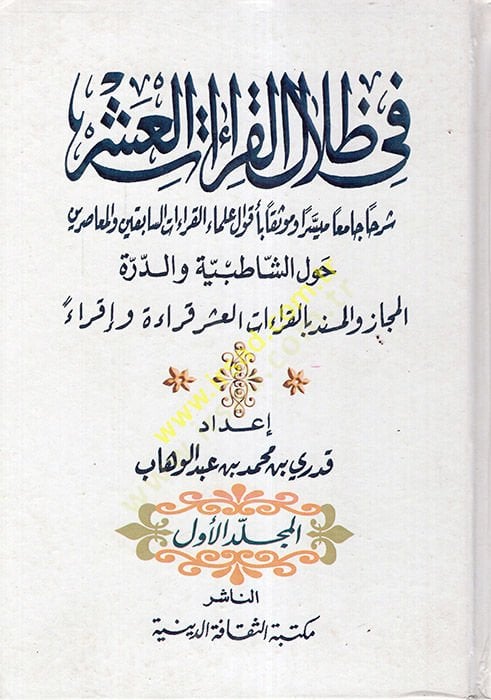 في ظلال القراءات العشر
شرحًا جامعًا ميسَّرًا وموثقًا بأقوال علماء القراءات السابقين والمعاصرين
حَول الشاطبيَّة والدّرة
المجاز والمسند بالقراءات العشر قراءة وإقراءً
إعداد
قدري بن محمد بن عبد الوهاب
المجلّد الأول
الناشر
مكتبة الثقافة الدينية